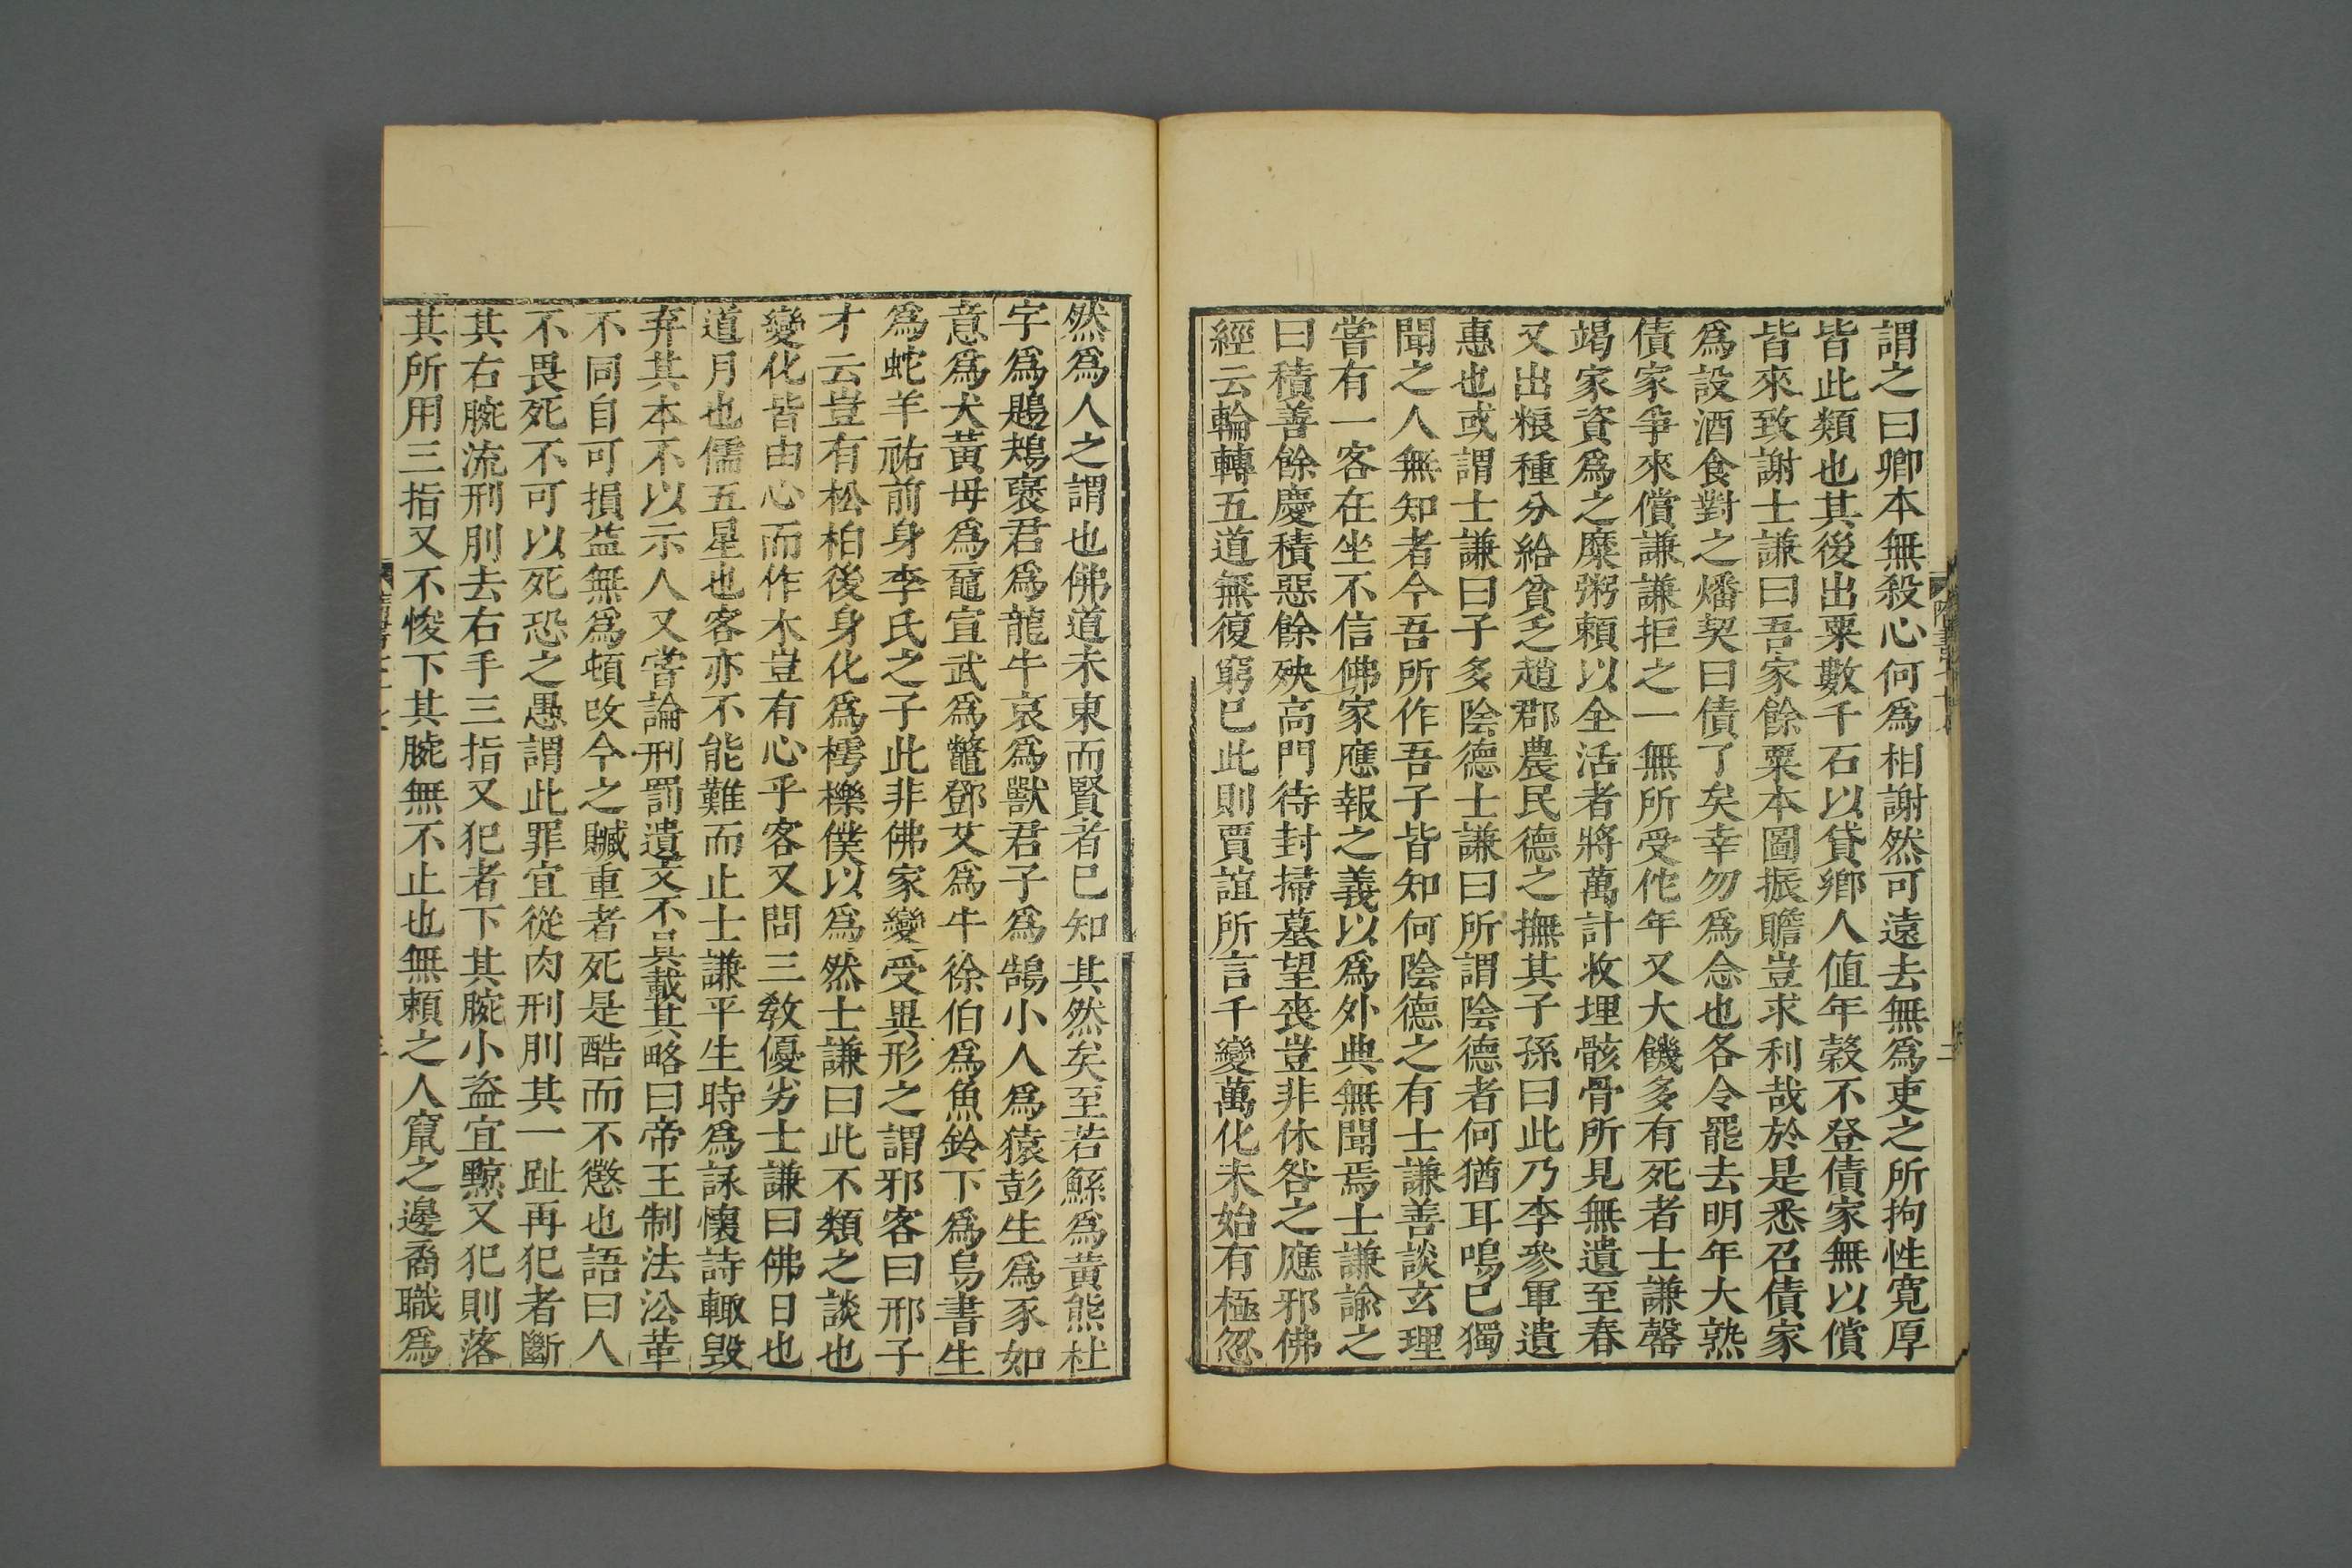 謂之曰卿本無殺心何爲相謝然可遠去無爲吏之所拘性寛厚
皆此類也其後出粟數千石以貸鄉人值年糓不登債家無以償
皆來致謝士謙曰吾家餘粟本圖振贍豈求利哉於是悉召債家
爲設酒食對之燔契曰債了矣幸勿爲念也各令罷去明年大熟
債家爭來償謙謙拒之一無所受佗年又大饑多有死者士謙罄
竭家資爲之糜粥賴以全活者將萬計收埋骸骨所見無遺至春
又出粮種分給貧乏趙郡農民德之撫其子孫曰此乃李參軍遺
惠也或謂士謙曰子多陰德士謙曰所謂陰德者何猶耳鳴已獨
聞之人無知者今吾所作吾子皆知何陰德之有士謙善談玄理
嘗有一客在坐不信佛家應報之義以爲外典無聞焉士謙諭之
曰積善餘慶積惡餘殃高門待封掃墓望喪豈非休咎之應邪佛
經云輪轉五道無復窮已此則賈誼所言千變萬化未始有極忽
然爲人之謂也佛道未東而賢者已知其然矣至若鯀爲黃熊杜
宇爲鶗鴂褒君爲龍牛哀爲獸君子爲鵠小人爲猿彭生爲豕如
意爲犬黃母爲黿宣武爲鼈鄧艾爲牛徐伯爲魚鈴下爲烏書生
爲蛇羊祜前身李氏之子此非佛家變受異形之謂邪客曰邢子
才云豈有松柏後身化爲樗櫟僕以爲然士謙曰此不類之談也
變化皆由心而作木豈有心乎客又問三敎優劣士謙曰佛日也
道月也儒五星也客亦不能難而止士謙平生時爲詠懷詩輙毀
弃其本不以示人又嘗論刑罰遺文不具載其略曰帝王制法㳂革
不同自可損益無爲頓改今之贓重者死是酷而不懲也語曰人
不畏死不可以死恐之愚謂此罪宜從肉刑刖其一趾再犯者斷
其右腕流刑刖去右手三指又犯者下其腕小盜宜黥又犯則落
其所用三指又不悛下其腕無不止也無賴之人竄之邊裔職爲